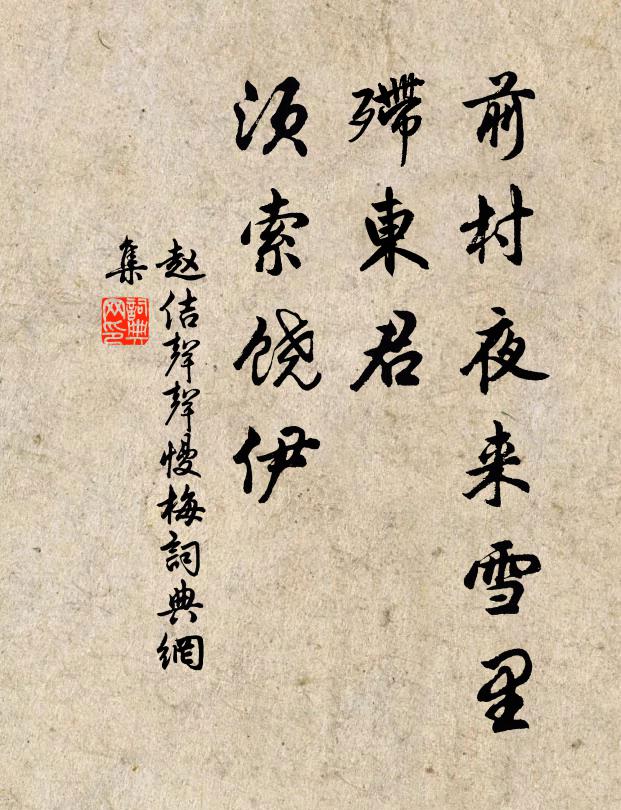 前村夜来雪里
殢東君
须索饶伊
赵佶聲聲慢梅詞典網
集
詞典
网印